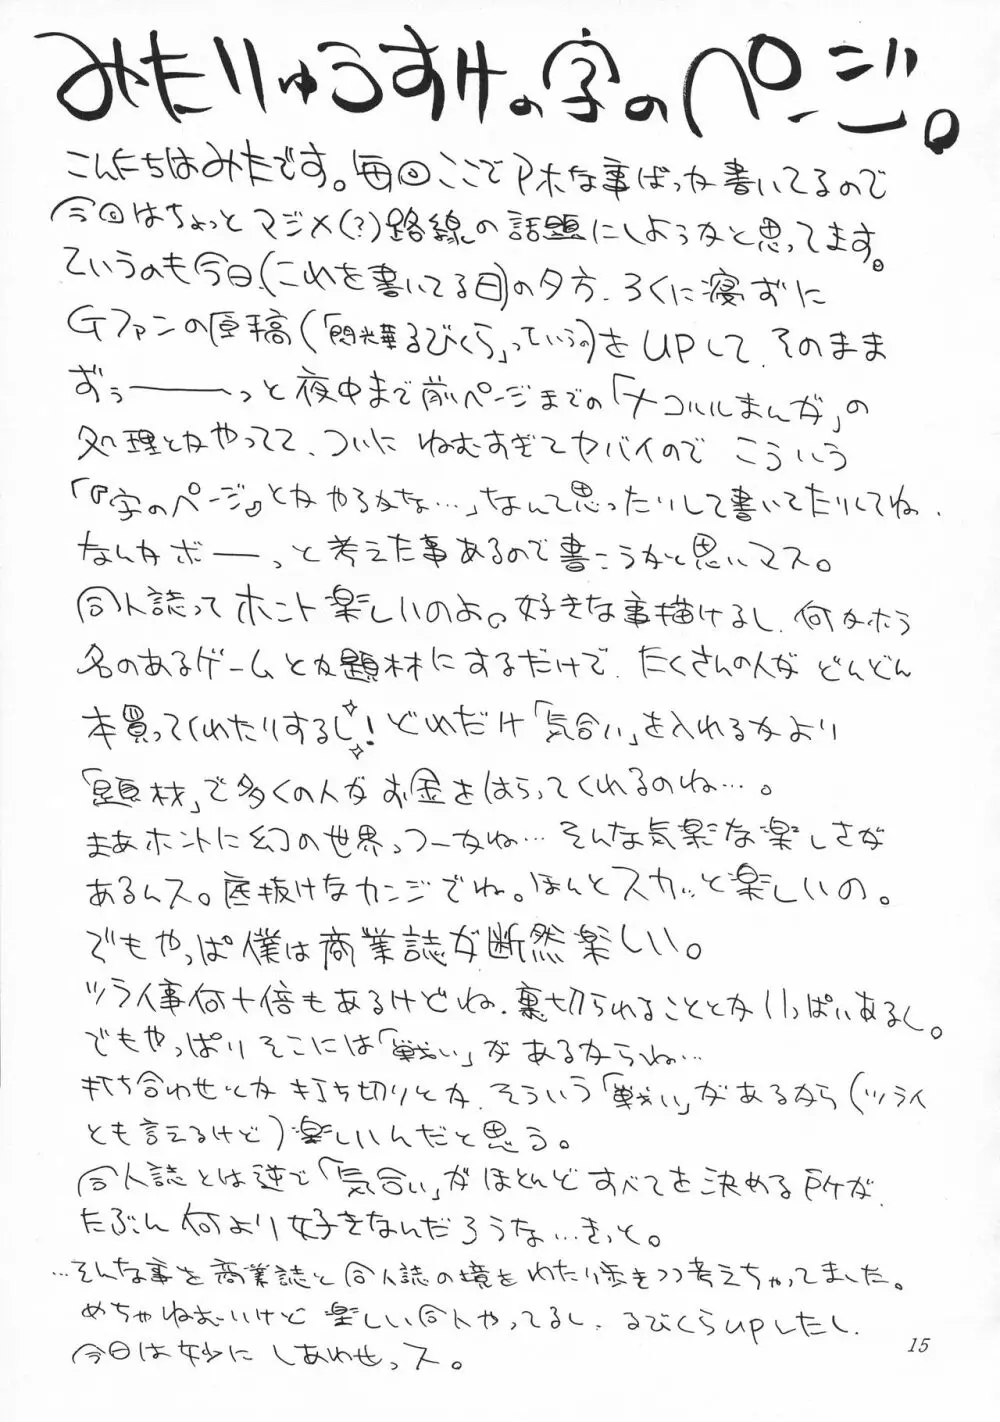 みたりゅうすけの字のページ。
こんにちはみたです。毎回ここでアホな事ばっか書いてるので
今回はちょっとマジメ(?)路線の話題にしようかと思ってます。
ていうのも今日(これを書いてる日)の夕方、ろくに寝ずに
Gファンの原稿(「閃光華るびくら」っていうの)をUPして、そのまま
ずぅーーーっと夜中まで前ページまでの「ナコルルまんが」の
処理とかやってて、ついにねむすぎてヤバイので こういう
「『字のページ』とかやるかな…」なんて思ったりして書いてたりしてね、
なんかボーーっと考えた事あるので書こうかと思いマス。
同人誌ってホント楽しいのよ。好きな事描けるし、何かホラ
名のあるゲームとか題材にするだけで、たくさんの人が どんどん
本買ってくれたりするし!どれだけ「気合い」を入れるかより
「題材」で多くの人がお金をはらってくれるのね…。
まあホントに幻の世界っつーかね…そんな気楽な楽しさが
あるんス。底抜けなカンジでね。ほんとスカッと楽しいの。
でもやっぱ僕は商業誌が断然楽しい。
ツライ事何十倍もあるけどね、裏切られることとかいっぱいあるし。
でもやっぱりそこには「戦い」があるからね…
打ち合わせとか打ち切りとか、そういう「戦い」があるから(ツライ
とも言えるけど)楽しいんだと思う。
同人誌とは逆で「気合い」がほとんどすべてを決める所が、
たぶん何より好きなんだろうな…きっと。
…そんな事を商業誌と同人誌の境をわたり歩きつつ考えちゃってました。
めちゃねむいけど 楽しい同人やってるし、るびくらUPしたし、
今日は妙にしあわせっス。
15